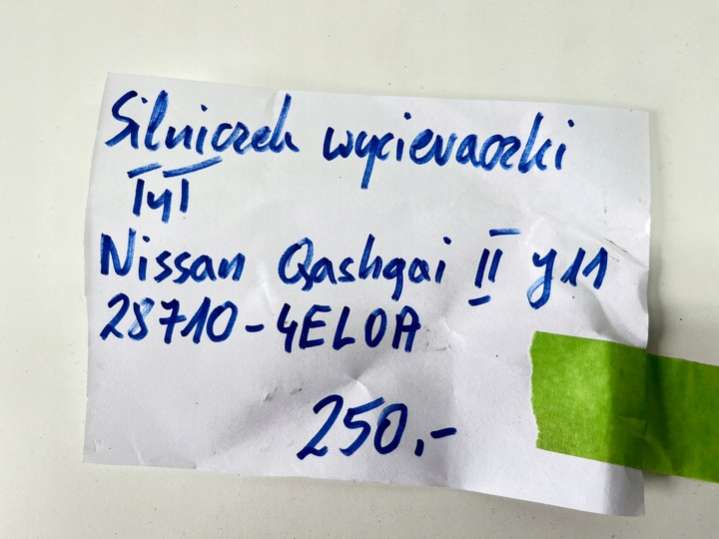 Silniczek wycieraczki
Tył
Nissan Qashqai II J11
28710-4EL0A
250,-